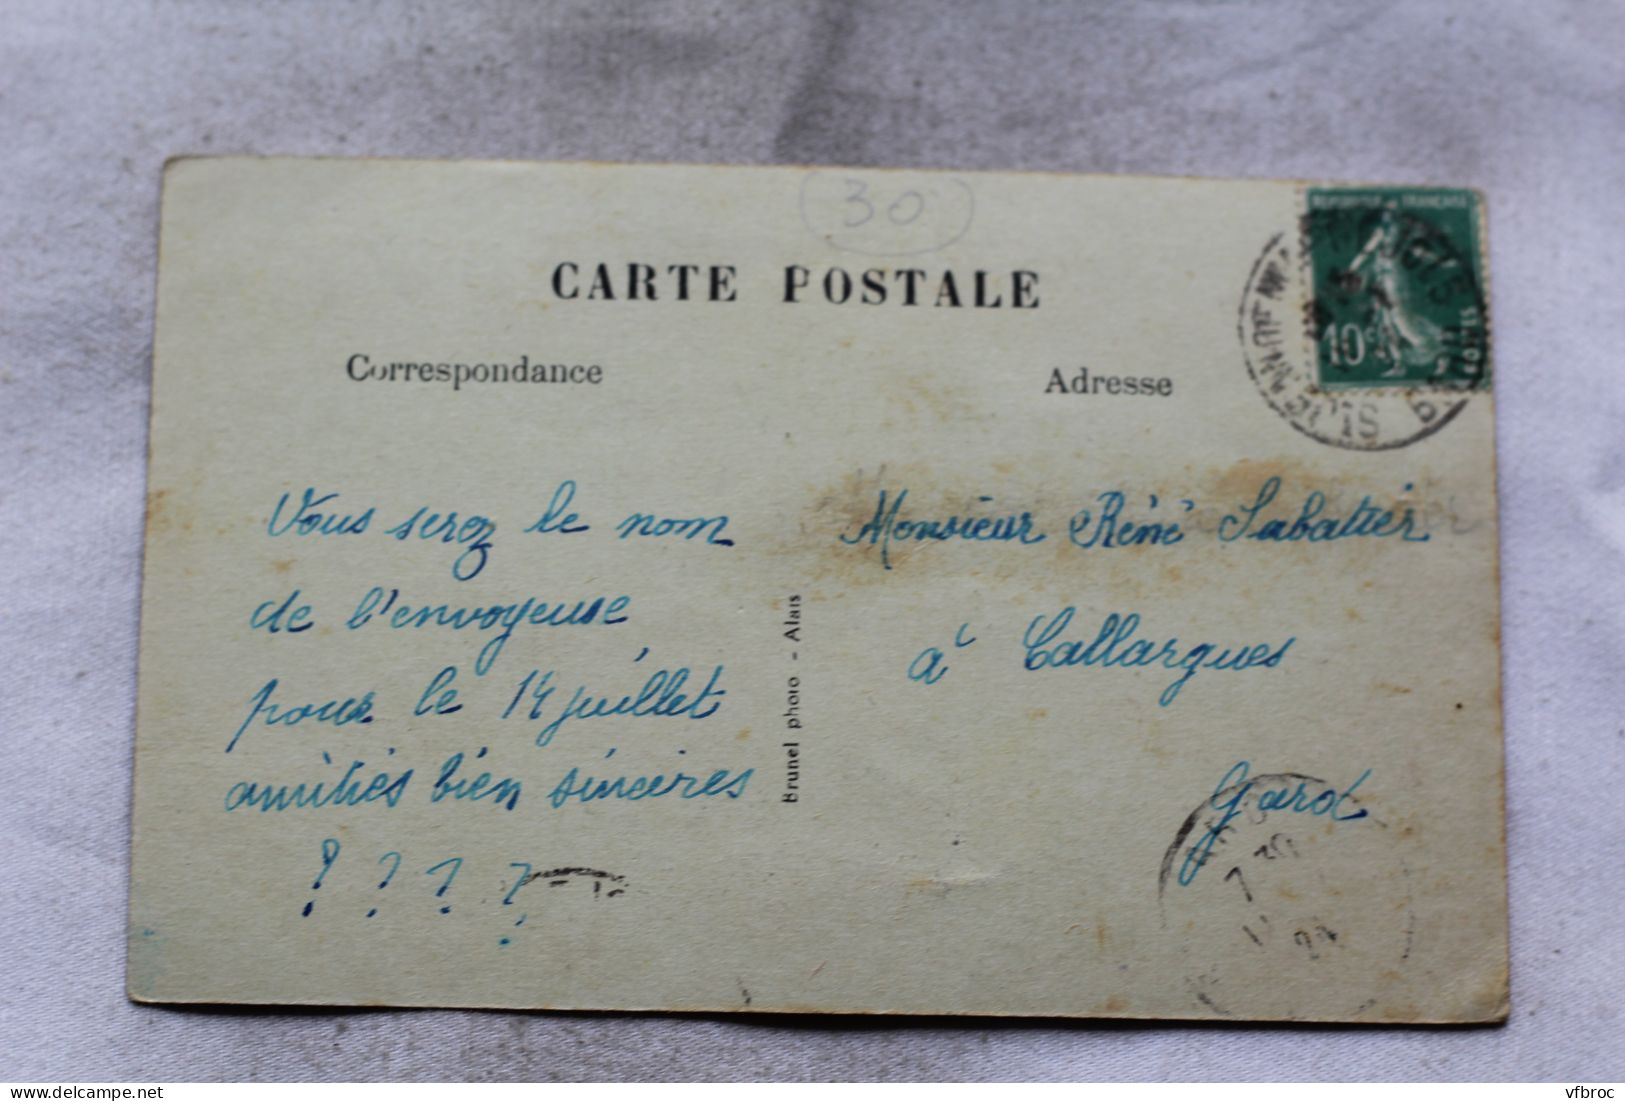 30
CARTE POSTALE
Correspondance
Adresse
REPUBLIQUE FRANCAISE
10c
Vous serez le nom
de l'envoyeuse
pour le 14 juillet
amitiés bien sincères
? ? ? ?
Brunel photo - Alais
Monsieur Réné Sabatier
à Callargues
Gard
delcampe.net
vfbroc